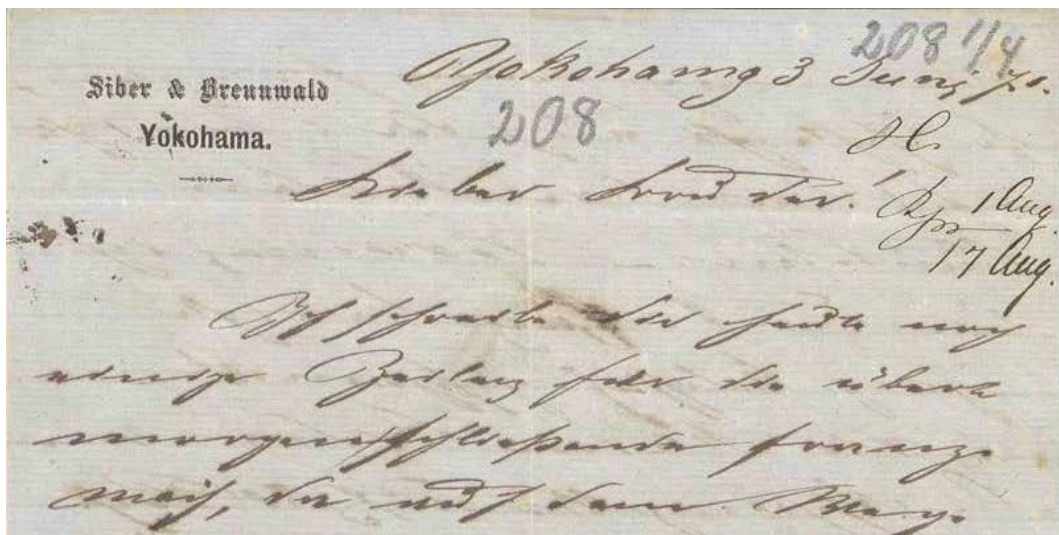 208 1/4
Siber & Brennwald
Yokohama.
Yokohama 3 Juni 71.
208
Lieber Bruder!
1 Aug.
17 Aug.
Ich schreibe dir heute noch
einige Zeilen für die über
morgen schließende franz.
mail, da auf dem